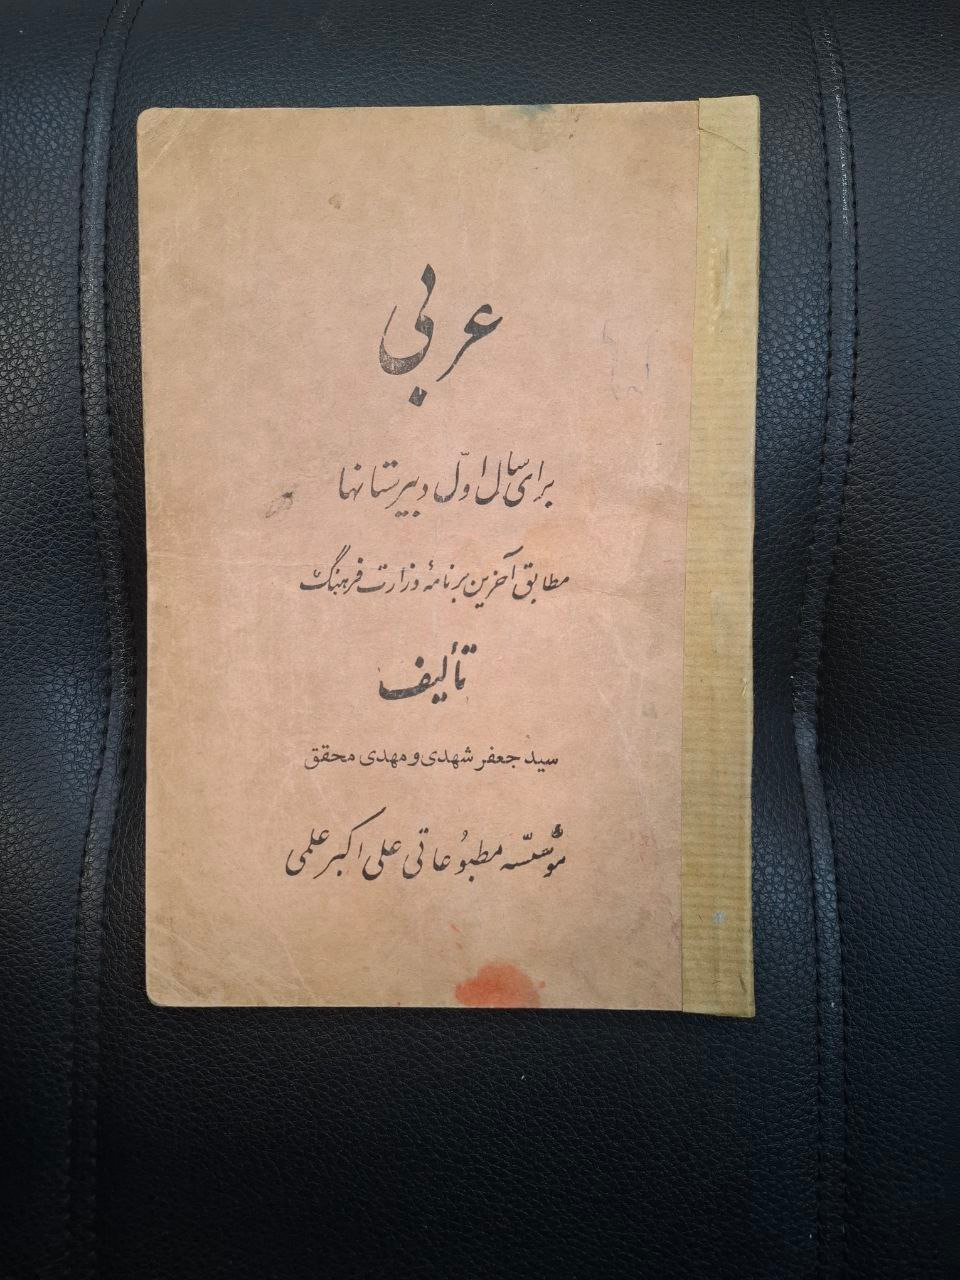 عربی
برای سال اوّل دبیرستانها
مطابق آخرین برنامهٔ وزارت فرهنگ
تألیف
سید جعفر شهدی و مهدی محقق
مؤسّسه مطبوُعاتی علی اکبر علمی